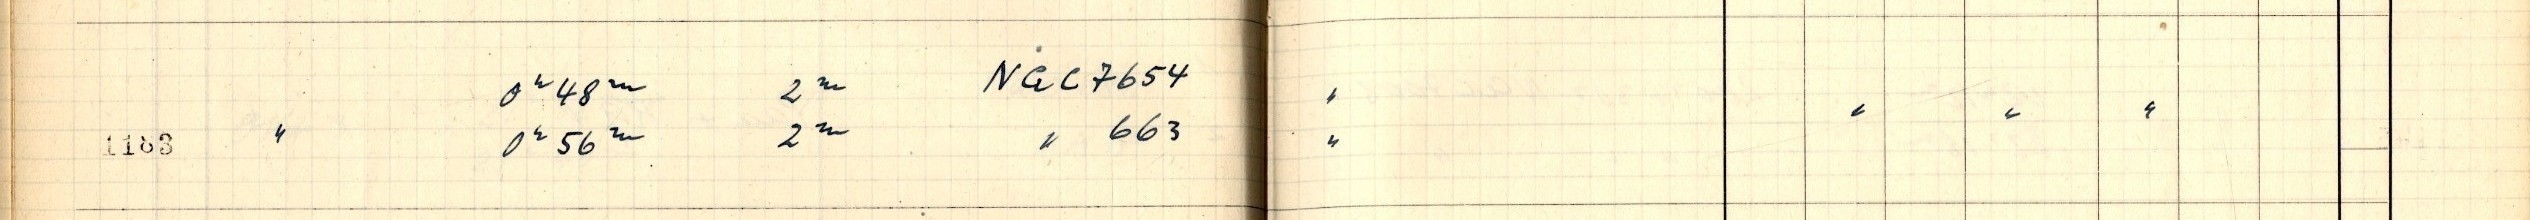 0ʰ48ᵐ 2ᵐ NGC 7654 "
" " "
1183 " 0ʰ56ᵐ 2ᵐ " 663 "